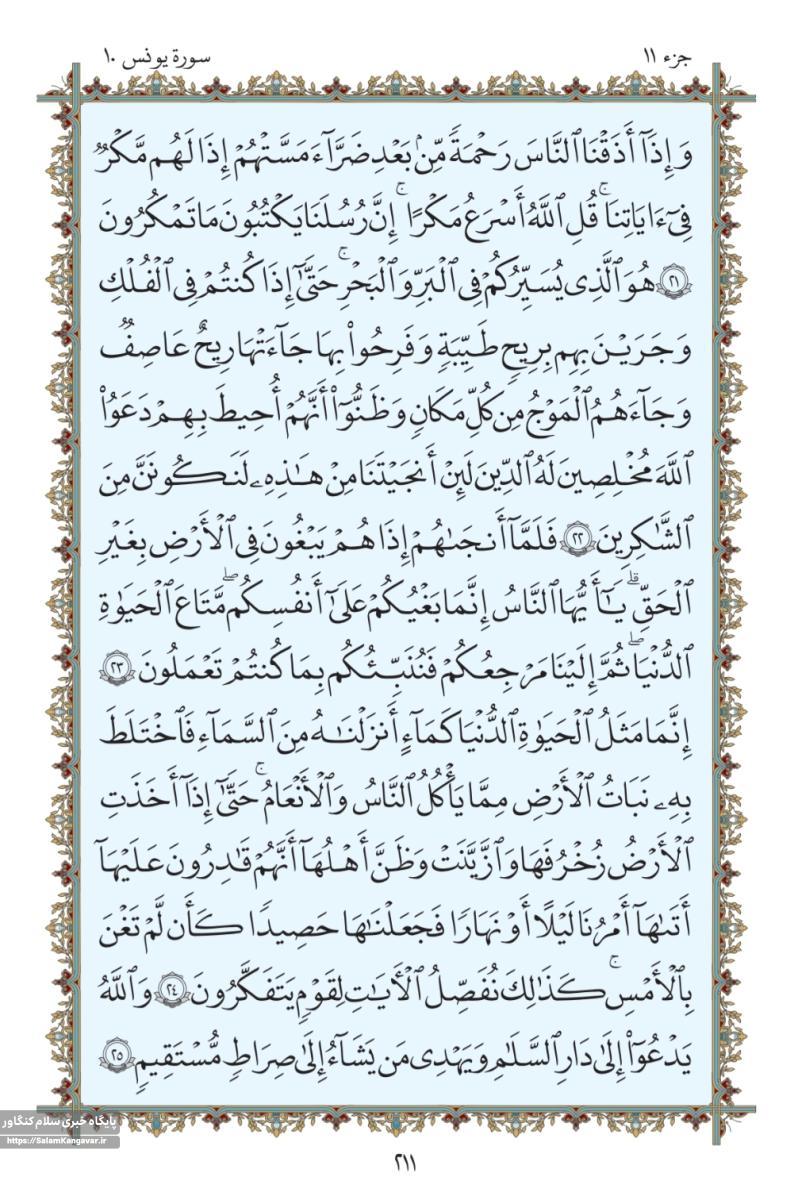 جزء ۱۱
سورة يونس ۱۰
وَإِذَآ أَذَقْنَا ٱلنَّاسَ رَحْمَةً مِّنۢ بَعْدِ ضَرَّآءَ مَسَّتْهُمْ إِذَا لَهُم مَّكْرٌ
فِىٓ ءَايَاتِنَا ۚ قُلِ ٱللَّهُ أَسْرَعُ مَكْرًا ۚ إِنَّ رُسُلَنَا يَكْتُبُونَ مَا تَمْكُرُونَ
﴿٢١﴾ هُوَ ٱلَّذِى يُسَيِّرُكُمْ فِى ٱلْبَرِّ وَٱلْبَحْرِ ۚ حَتَّىٰٓ إِذَا كُنتُمْ فِى ٱلْفُلْكِ
وَجَرَيْنَ بِهِم بِرِيحٍ طَيِّبَةٍ وَفَرِحُوا۟ بِهَا جَآءَتْهَا رِيحٌ عَاصِفٌ
وَجَآءَهُمُ ٱلْمَوْجُ مِن كُلِّ مَكَانٍ وَظَنُّوٓا۟ أَنَّهُمْ أُحِيطَ بِهِمْ دَعَوُا۟
ٱللَّهَ مُخْلِصِينَ لَهُ ٱلدِّينَ لَئِنْ أَنجَيْتَنَا مِنْ هَـٰذِهِۦ لَنَكُونَنَّ مِنَ
ٱلشَّـٰكِرِينَ ﴿٢٢﴾ فَلَمَّآ أَنجَىٰهُمْ إِذَا هُمْ يَبْغُونَ فِى ٱلْأَرْضِ بِغَيْرِ
ٱلْحَقِّ ۗ يَـٰٓأَيُّهَا ٱلنَّاسُ إِنَّمَا بَغْيُكُمْ عَلَىٰٓ أَنفُسِكُم ۖ مَّتَاعَ ٱلْحَيَوٰةِ
ٱلدُّنْيَا ۖ ثُمَّ إِلَيْنَا مَرْجِعُكُمْ فَنُنَبِّئُكُم بِمَا كُنتُمْ تَعْمَلُونَ ﴿٢٣﴾
إِنَّمَا مَثَلُ ٱلْحَيَوٰةِ ٱلدُّنْيَا كَمَآءٍ أَنزَلْنَـٰهُ مِنَ ٱلسَّمَآءِ فَٱخْتَلَطَ
بِهِۦ نَبَاتُ ٱلْأَرْضِ مِمَّا يَأْكُلُ ٱلنَّاسُ وَٱلْأَنْعَامُ ۚ حَتَّىٰٓ إِذَآ أَخَذَتِ
ٱلْأَرْضُ زُخْرُفَهَا وَٱزَّيَّنَتْ وَظَنَّ أَهْلُهَآ أَنَّهُمْ قَـٰدِرُونَ عَلَيْهَآ
أَتَىٰهَآ أَمْرُنَا لَيْلًا أَوْ نَهَارًا فَجَعَلْنَـٰهَا حَصِيدًا كَأَن لَّمْ تَغْنَ
بِٱلْأَمْسِ ۚ كَذَٰلِكَ نُفَصِّلُ ٱلْأَيَـٰتِ لِقَوْمٍ يَتَفَكَّرُونَ ﴿٢٤﴾ وَٱللَّهُ
يَدْعُوٓا۟ إِلَىٰ دَارِ ٱلسَّلَـٰمِ وَيَهْدِى مَن يَشَآءُ إِلَىٰ صِرَاطٍ مُّسْتَقِيمٍ ﴿٢٥﴾
پایگاه خبری سلام کنگاور
https://SalamKangavar.ir
۲۱۱